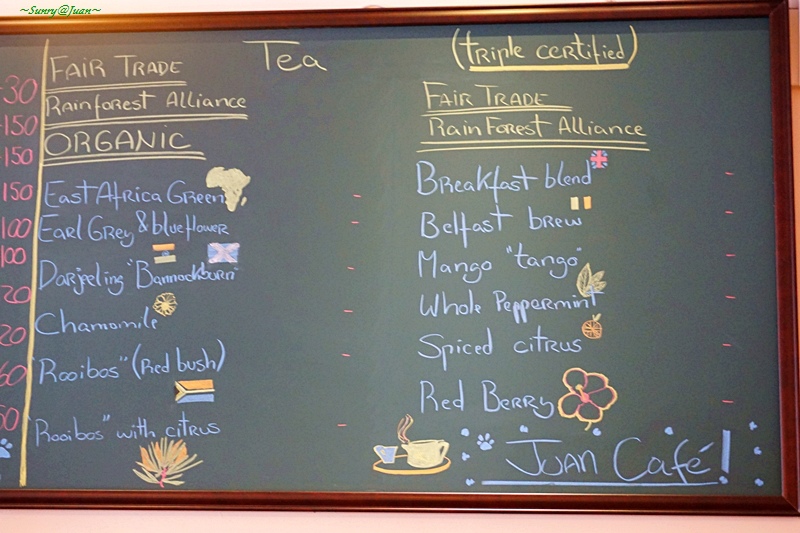 ~Sunry@Juan~
Tea
(triple certified)
30
150
150
150
100
100
20
20
60
50
FAIR TRADE
Rainforest Alliance
ORGANIC
East Africa Green
Earl Grey & blueflower
Darjeeling "Bannockburn"
Chamomile
"Rooibos" (Red bush)
"Rooibos" with citrus
FAIR TRADE
RainForest Alliance
Breakfast blend
Belfast brew
Mango "tango"
Whole Peppermint
Spiced citrus
Red Berry
Juan Café!